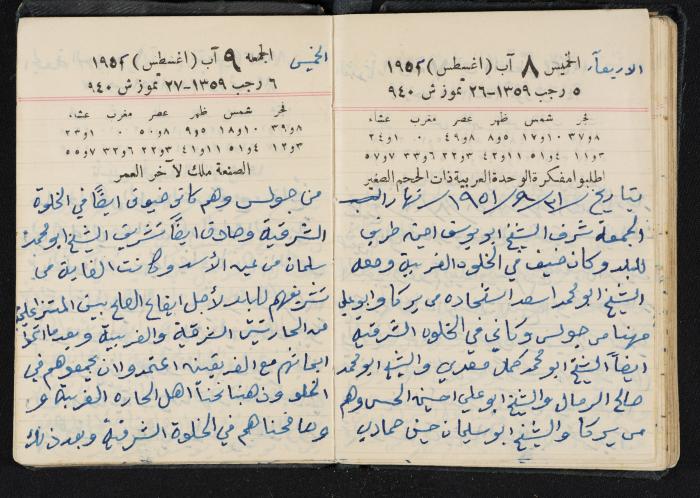 الاربعاء
الخميس ٨ آب (اغسطس) ١٩٥٢
٥ رجب ١٣٥٩-٢٦ تموز ش ٩٤٠
فجر شمس ظهر عصر مغرب عشاء
٨و٣٧ ١٠و١٧ ٥و٨ ٨و٤٩ ٠ ١و٢٤
٣و١١ ٤و٥١ ١١و٤٢ ٣و٢٢ ٦و٣٣ ٧و٥٧
اطلبوا مفكرة الوحدة العربية ذات الحجم الصغير
بتاريخ ٣١/٩/١٩٥١ نهار
الجمعه شرف الشيخ ابو يوسف امين طريف
للبلد وكان ضيف في الخلوه الغربية ومعه
الشيخ ابو محمد اسعد من يركا وابو علي
مهنا من جولس وكان في الخلوه الشرقيه
ايضاً الشيخ ابو محمد كمال معدي والشيخ ابو محمد
صالح الرمال والشيخ ابو علي حسين وهم
من يركا والشيخ ابو سليمان حسن حمادي
الخميس
الجمعه ٩ آب (اغسطس) ١٩٥٢
٦ رجب ١٣٥٩-٢٧ تموز ش ٩٤٠
فجر شمس ظهر عصر مغرب عشاء
٨و٣٩ ١٠و١٨ ٥و٩ ٨و٥٠ ٠ ١و٢٣
٣و١٢ ٤و٥١ ١١و٤١ ٣و٢٢ ٦و٣٢ ٧و٥٥
الصنعة ملك لآخر العمر
من جولس وهم كانو ضيوف ايضاً في الخلوة
الشرقية وصادف ايضاً تشريف الشيخ ابو محمد
سلمان من عين الأسد وكانت الغاية من
تشريفهم للبلد لأجل ايقاع الصلح بين المتنازعين
من الحارتين الشرقية والغربية وبعد
ابحاثهم مع الفريقين اعتمدوا ان يجمعوهم في
الخلو وذهبنا نحن اهل الحاره الغربية و
وصافحناهم في الخلوة الشرقية وبعد ذلك